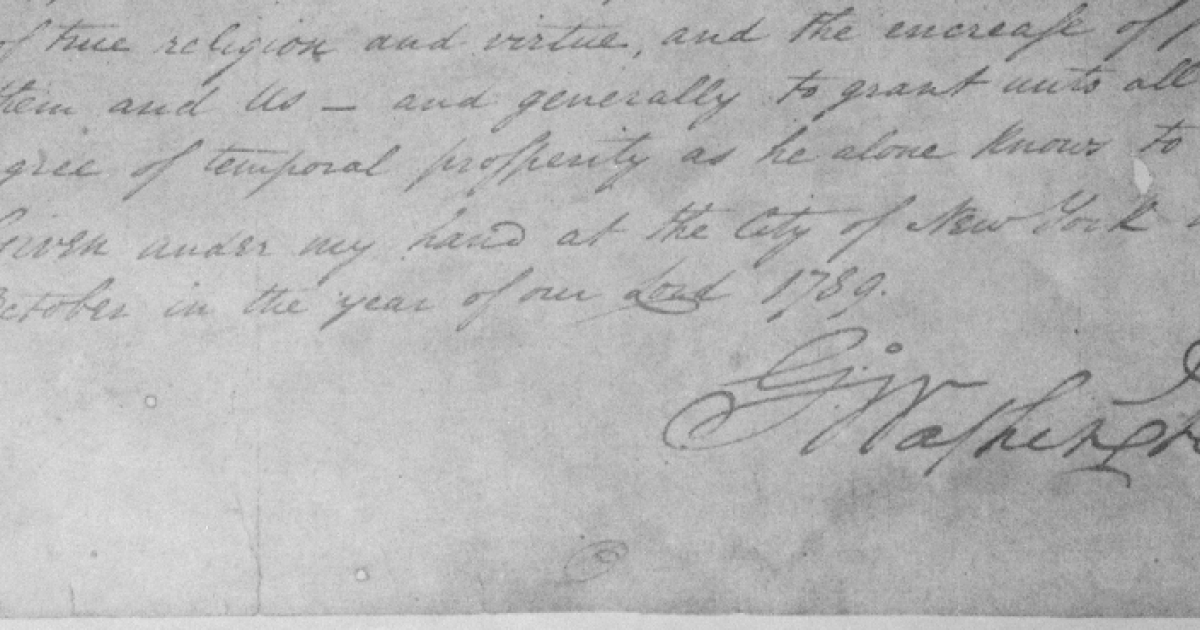 of true religion and virtue, and the encrease of
them and Us — and generally to grant unto all
gree of temporal prosperity as he alone knows to
Given under my hand at the City of New York
October in the year of our Lord 1789.
G:Washington